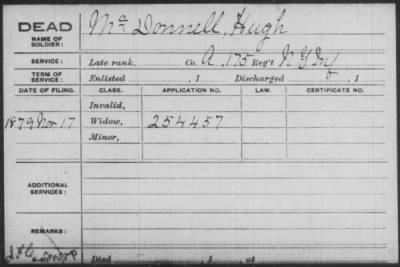 DEAD Mc Donnell, Hugh
NAME OF
SOLDIER:
SERVICE: Late rank, Co. A, 175 Reg't N Y Inf
TERM OF
SERVICE: Enlisted , 1 Discharged , 1
DATE OF FILING. CLASS. APPLICATION NO. LAW. CERTIFICATE NO.
Invalid,
1879 Nov 17 Widow, 254457
Minor,
ADDITIONAL
SERVICES:
REMARKS:
Died , 1 , at